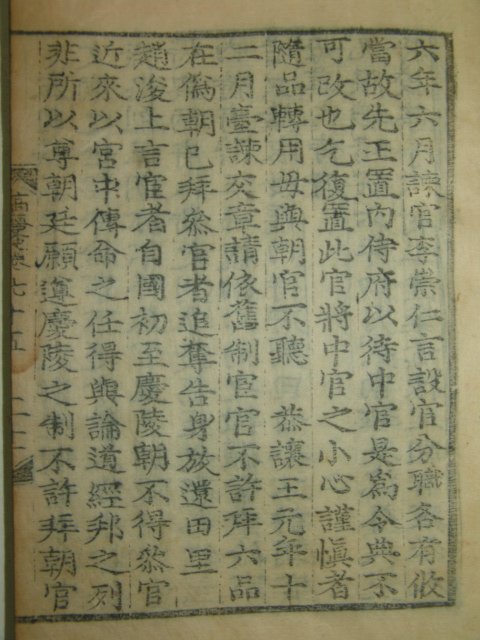 六年六月諫官李崇仁言設官分職各有攸
當故先王置內侍府以待中官是為令典不
可改也乞復置此官將中官之小心謹愼者
隨品轉用毋與朝官不聽 恭讓王元年十
二月臺諫交章請依舊制宦官不許拜六品
在僞朝已拜叅官者追奪告身放還田里
趙浚上言宦者自國初至慶陵朝不得叅官
近來以宮中傳命之任得與論道經邦之列
非所以尊朝廷願遵慶陵之制不許拜朝官
高麗史卷七十五